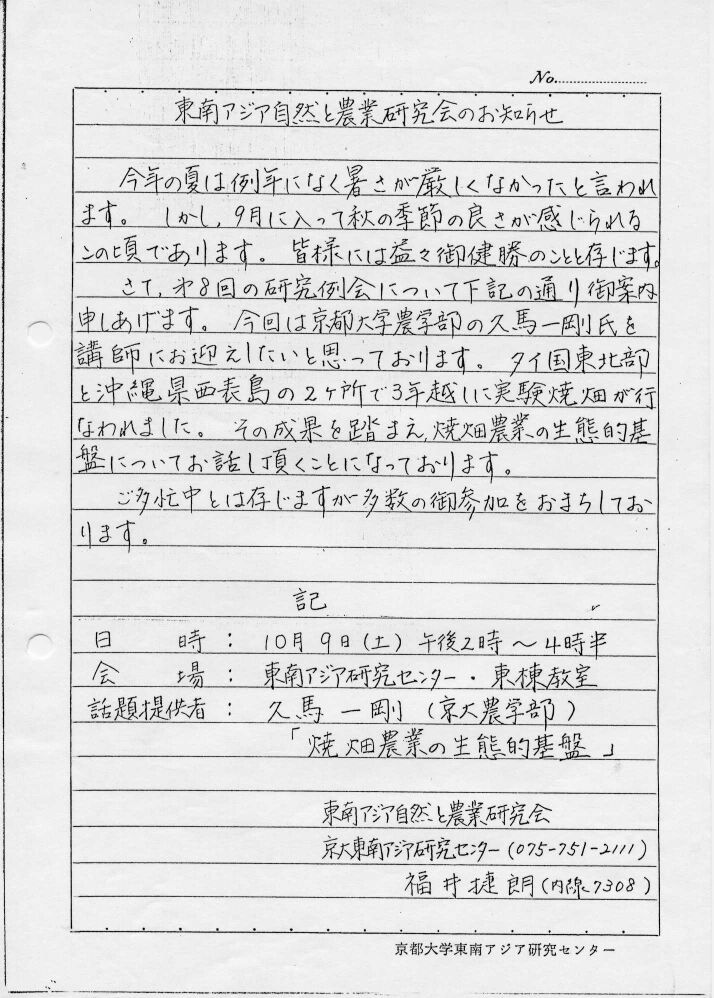 No.
東南アジア自然と農業研究会のお知らせ
今年の夏は例年になく暑さが厳しくなかったと言われ
ます。しかし,9月に入って秋の季節の良さが感じられる
この頃であります。皆様には益々御健勝のことと存じます。
さて,第8回の研究例会について下記の通り御案内
申しあげます。今回は京都大学農学部の久馬一剛氏を
講師にお迎えしたいと思っております。タイ国東北部
と沖縄県西表島の2ヶ所で3年越しに実験焼畑が行
なわれました。その成果を踏まえ,焼畑農業の生態的基
盤についてお話し頂くことになっております。
ご多忙中とは存じますが多数の御参加をおまちしてお
ります。
記
日時:10月9日(土)午後2時〜4時半
会場:東南アジア研究センター・東棟教室
話題提供者:久馬一剛(京大農学部)
「焼畑農業の生態的基盤」
東南アジア自然と農業研究会
京大東南アジア研究センター(075-751-2111)
福井捷朗(内線7308)
京都大学東南アジア研究センター